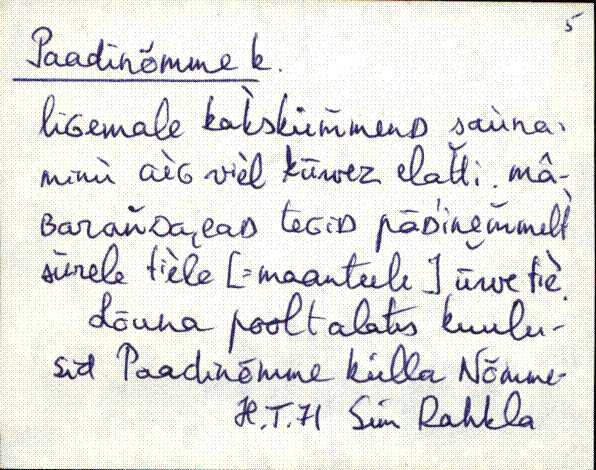 5
Paadinõmme k.
liGemale kakskümmenD sauna.
minu aèG vièl kūrvez elatti. mâ-
BaranDajeaD teGiD pāDinemmelt
sūrele tièle [=maanteele] ūwe tiè.
Lõuna poolt alates kuulu-
sid Paadinõmme külla Nõmme-
H.T.71 Sim Rahkla